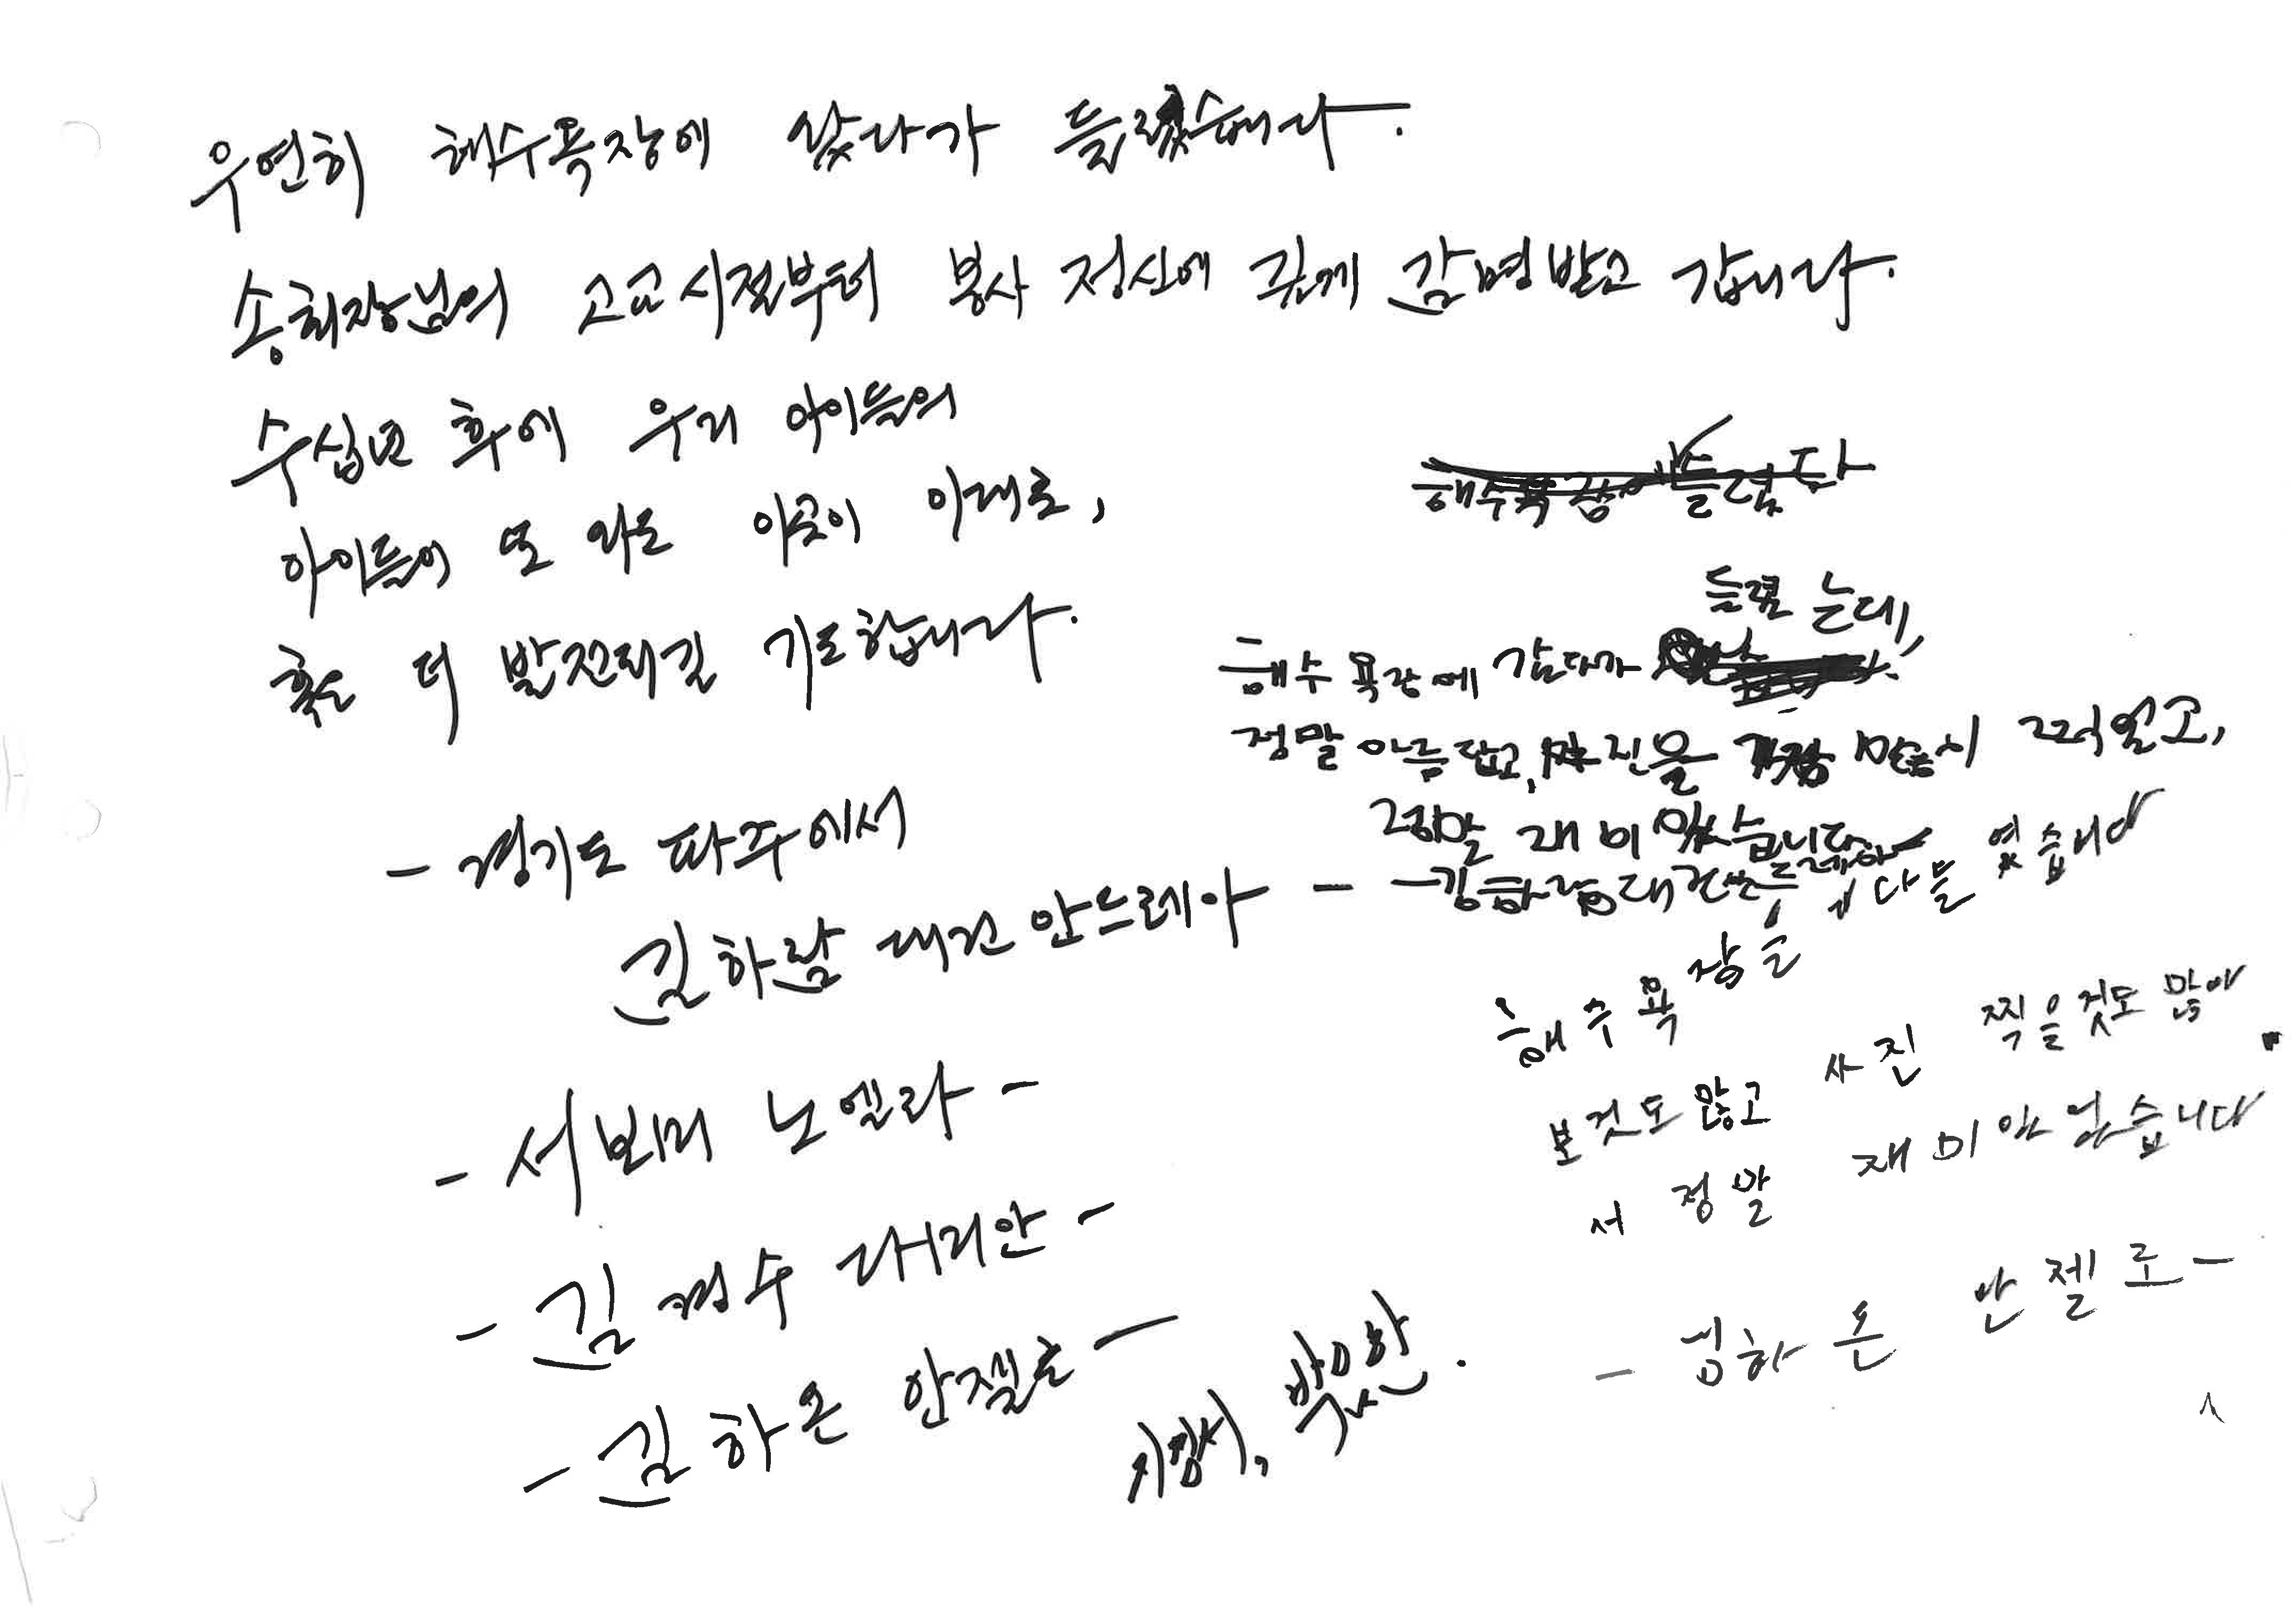 우연히 해수욕장에 왔다가 들렀습니다.
송회장님의 고교시절부터 봉사 정신에 깊게 감명받고 갑니다.
수십년 후에 우리 아이들의
아이들이 또 와도 이곳이 이대로,
혹은 더 발전되길 기도합니다.
- 경기도 파주에서
김하람 대건 안드레아 -
- 서보미 노엘라 -
- 김경수 대리안 -
- 김하온 안젤로 -
박요한.
들렸는데,
해수욕장에 갔다가
정말 아름답고, 사진을 찍었고,
정말 재미있습니다.
- 김하람 대건안드레아 -
해수욕장을 다들 었습니다
보것도 많고 사진 찍을것도 많아
서 정말 재미있었습니다
- 김하온 안젤로 -